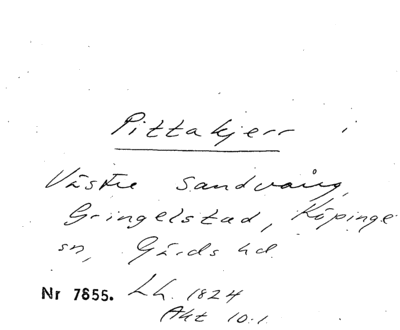 Pittakjerr i
Västre Sandvång,
Gringelstad, Köpinge
sn, Gärds hd.
Nr 7655. Lh. 1824
Akt 10.1